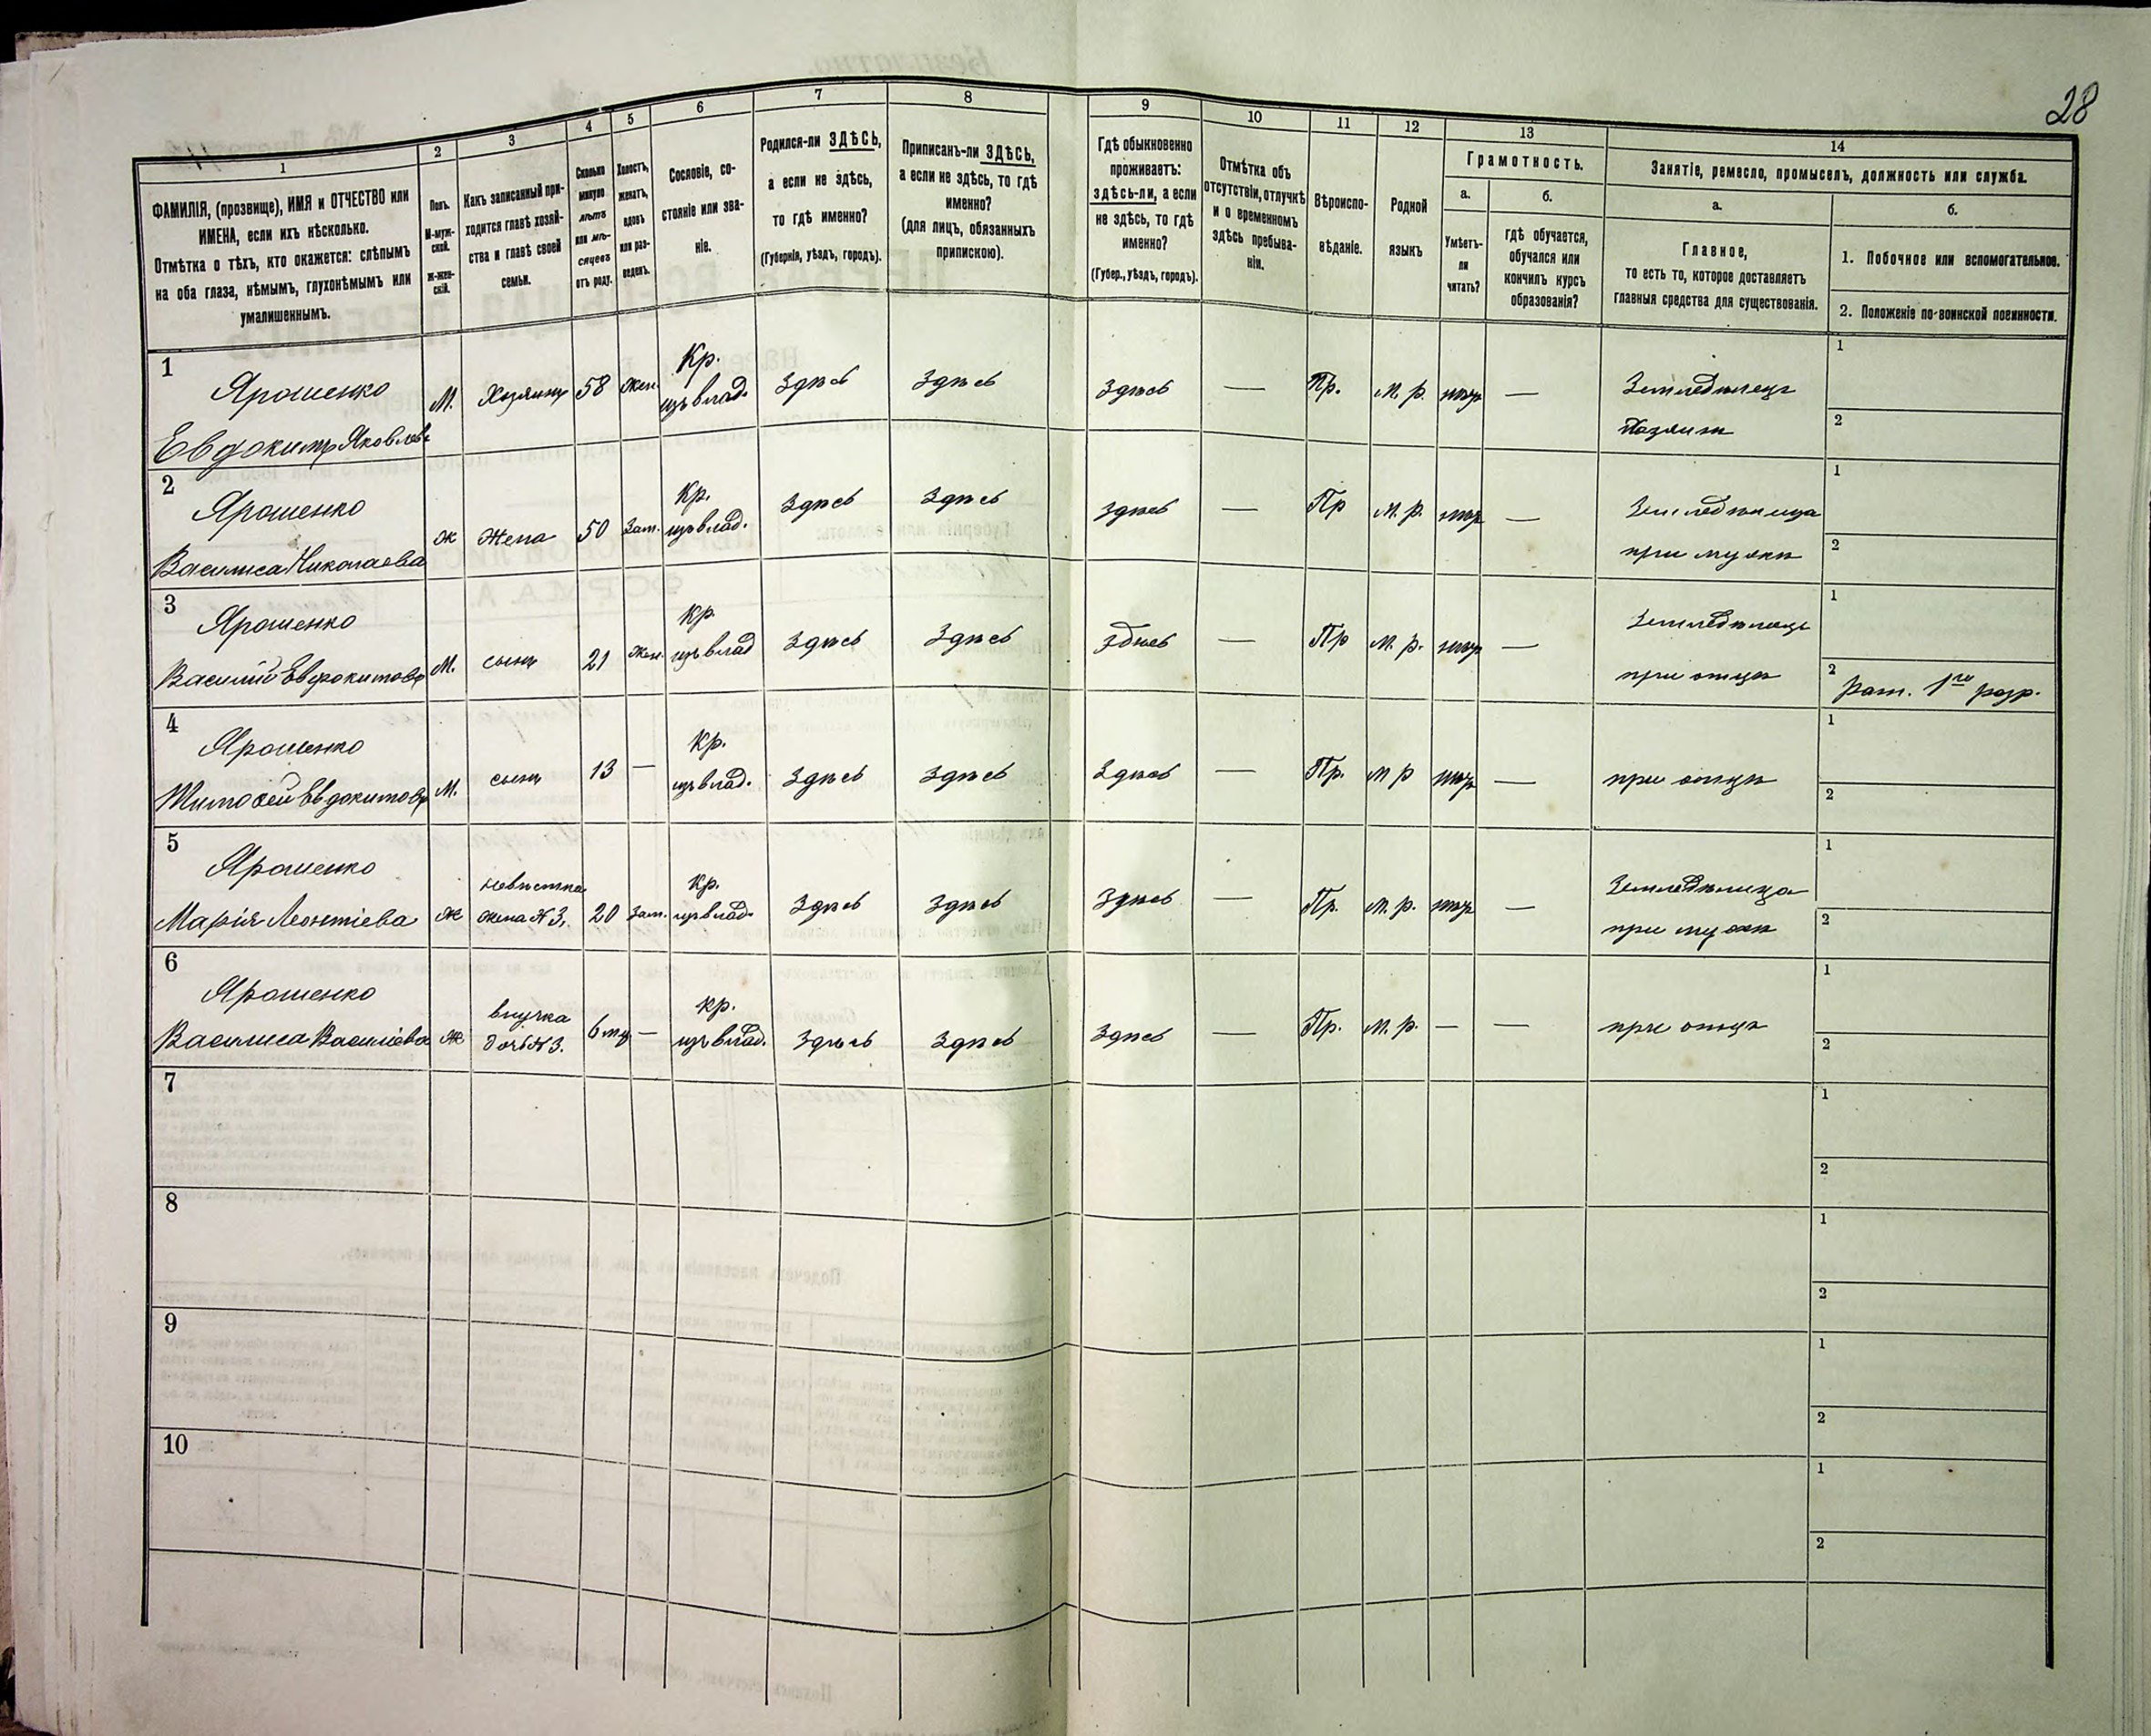 28
1
2
3
4
5
6
7
8
9
10
11
12
13
14
ФАМИЛІЯ, (прозвище), ИМЯ и ОТЧЕСТВО или
ИМЕНА, если ихъ нѣсколько.
Отмѣтка о тѣхъ, кто окажется: слѣпымъ
на оба глаза, нѣмымъ, глухонѣмымъ или
умалишеннымъ.
Полъ.
М-муж-
ской.
Ж-жен-
скій.
Какъ записанный при-
ходится главѣ хозяй-
ства и главѣ своей
семьи.
Сколько
минуло
лѣтъ
или мѣ-
сяцевъ
отъ роду.
Холостъ,
женатъ,
вдовъ
или раз-
веденъ.
Сословіе, со-
стояніе или зва-
ніе.
Родился-ли ЗДѢСЬ,
а если не здѣсь,
то гдѣ именно?
(Губернія, уѣздъ, городъ).
Приписанъ-ли ЗДѢСЬ,
а если не здѣсь, то гдѣ
именно?
(для лицъ, обязанныхъ
припискою).
Гдѣ обыкновенно
проживаетъ:
здѣсь-ли, а если
не здѣсь, то гдѣ
именно?
(Губер., уѣздъ, городъ).
Отмѣтка объ
отсутствіи, отлучкѣ
и о временномъ
здѣсь пребыва-
ніи.
Вѣроиспо-
вѣданіе.
Родной
языкъ
Грамотность.
а.
б.
Умѣетъ-
ли
читать?
гдѣ обучается,
обучался или
кончилъ курсъ
образованія?
Занятіе, ремесло, промыселъ, должность или служба.
а.
б.
Главное,
то есть то, которое доставляетъ
главныя средства для существованія.
1. Побочное или вспомогательное.
2. Положеніе по воинской повинности.
1
Ярошенко
Евдокимъ Яковлевъ
М. Хозяинъ 58 жен. Кр. изъ влад. Здѣсь Здѣсь Здѣсь — Пр. М. р. нѣтъ —
Земледѣлецъ
Хозяинъ
1
2
2
Ярошенко
Василиса Николаева
ж жена 50 Зам. Кр. изъ влад. Здѣсь Здѣсь Здѣсь — Пр М. р. нѣтъ —
Земледѣлица
при мужѣ
1
2
3
Ярошенко
Василій Евдокимовъ
М. сынъ 21 жен. Кр. изъ влад Здѣсь Здѣсь Здѣсь — Пр М. р. нѣтъ —
Земледѣлецъ
при отцѣ
1
2 Рат. 1го разр.
4
Ярошенко
Тимофей Евдокимовъ
М. сынъ 13 — Кр. изъ влад. Здѣсь Здѣсь Здѣсь — Пр. М р нѣтъ —
при отцѣ
1
2
5
Ярошенко
Марія Леонтіева
ж невѣстка жена N 3, 20 Зам. Кр. изъ влад. Здѣсь Здѣсь Здѣсь — Пр. М. р. нѣтъ —
Земледѣлица
при мужѣ
1
2
6
Ярошенко
Василиса Василіева
ж внучка дочь N 3. 6 мц — Кр. изъ влад. Здѣсь Здѣсь Здѣсь — Пр. М. р. — —
при отцѣ
1
2
7
1
2
8
1
2
9
1
2
10
1
2